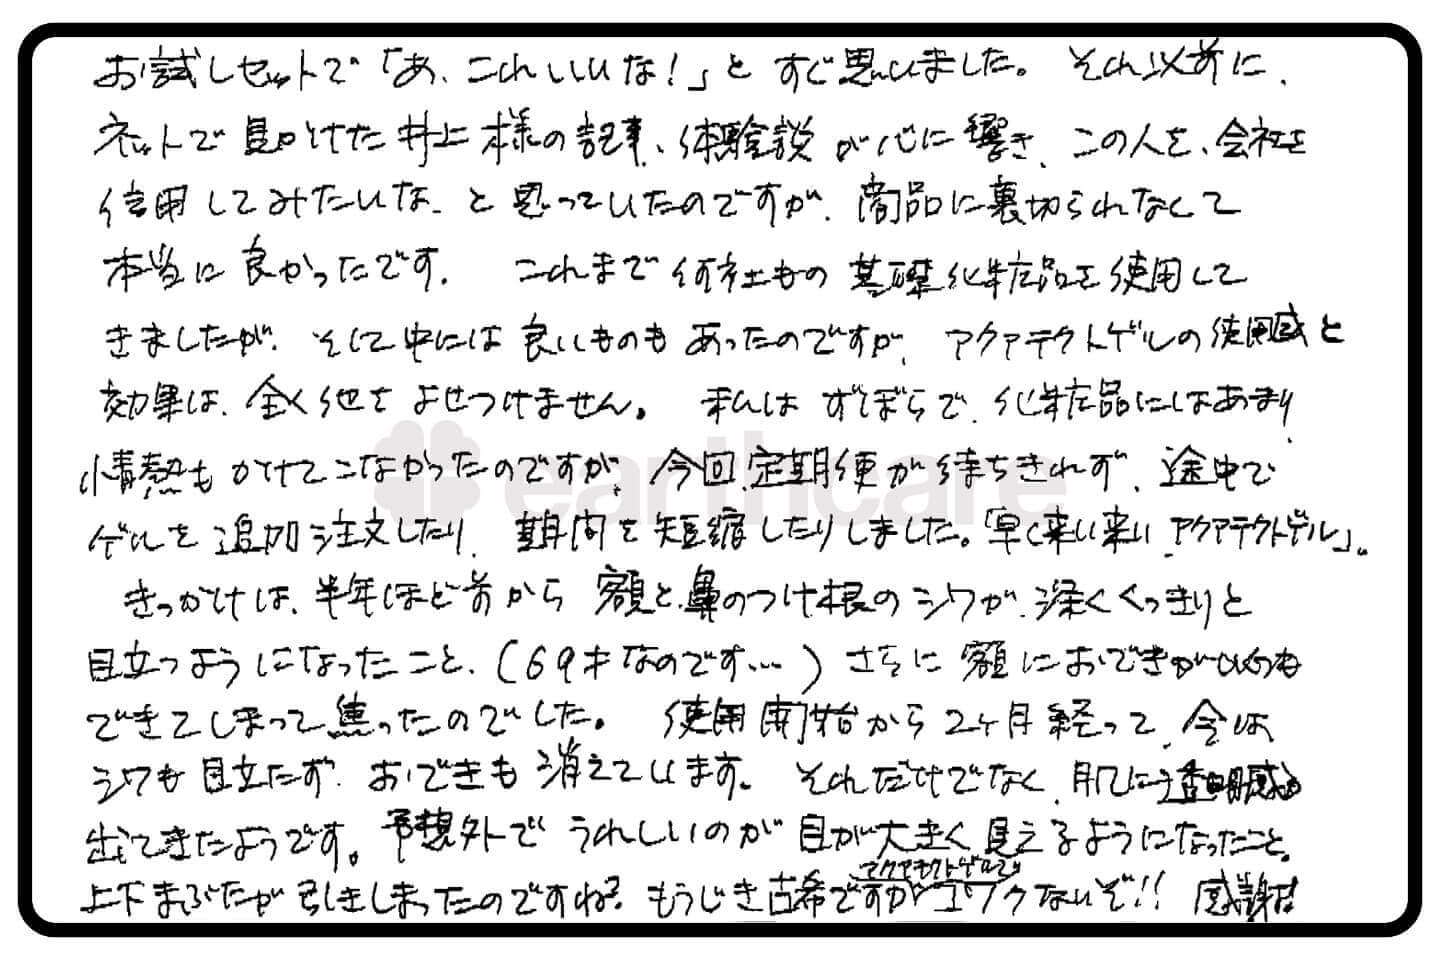 お試しセットで「あ、これいいな!」とすぐ思いました。それ以前に、
ネットで見かけた井上様の記事、体験談が心に響き、この人を、会社を
信用してみたいな、と思っていたのですが、商品に裏切られなくて
本当に良かったです。 これまで何社もの基礎化粧品を使用して
きましたが、そして中には良いものもあったのですが、アクアテクトゲルの使用感と
効果は、全く他をよせつけません。 私はずぼらで、化粧品にはあまり
情熱もかけてこなかったのですが、今回、定期便が待ちきれず、途中で
ゲルを追加注文したり、期間を短縮したりしました。「早く来い来い、アクアテクトゲル」。
きっかけは、半年ほど前から額と鼻のつけ根のシワが、深くくっきりと
目立つようになったこと、(69才なのです…)さらに額におできがいくつも
できてしまって焦ったのでした。 使用開始から2ヶ月経って、今は
シワも目立たず、おできも消えています。それだけでなく、肌に透明感も
出てきたようです。予想外でうれしいのが目が大きく見えるようになったこと。
上下まぶたが引きしまったのですね?もうじき古希ですがアクアテクトゲルでコワクないぞ!! 感謝!
earthcare